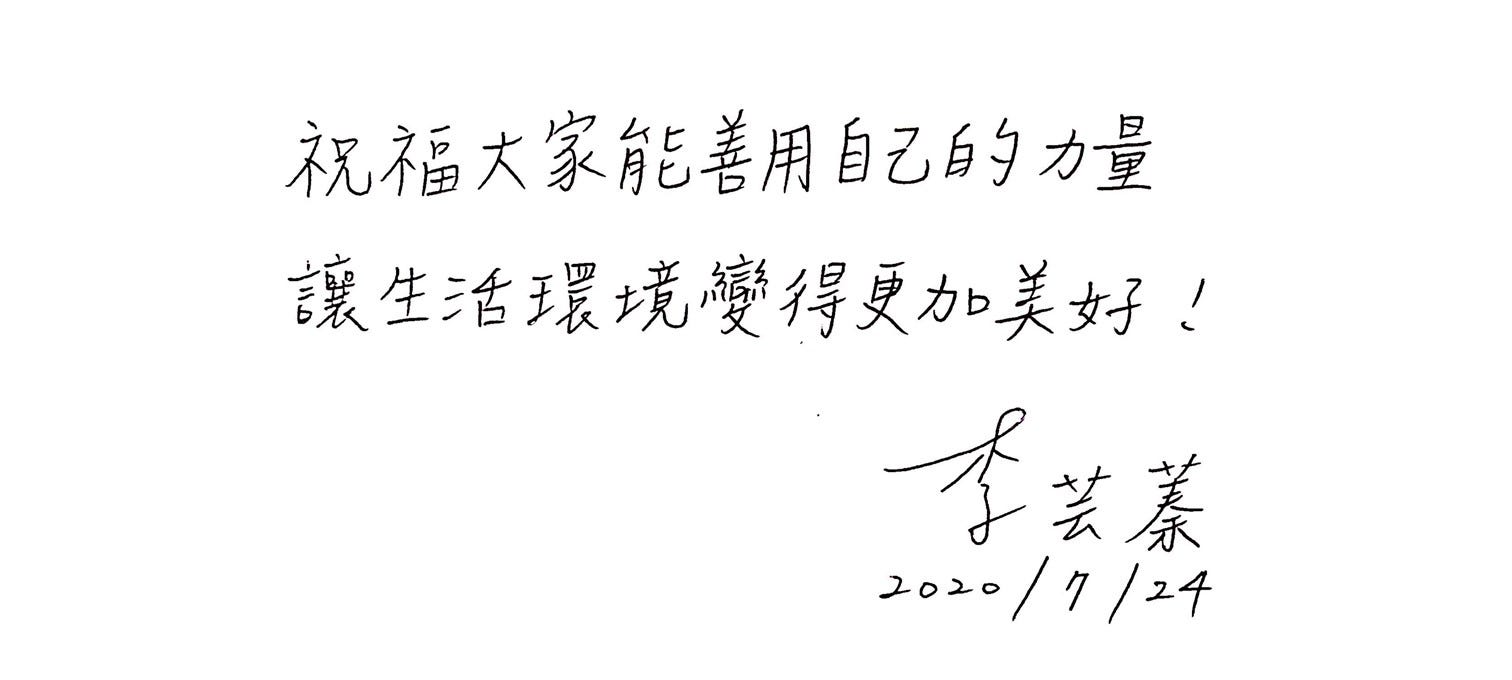 祝福大家能善用自己的力量
讓生活環境變得更加美好！
李芸蓁
2020/7/24